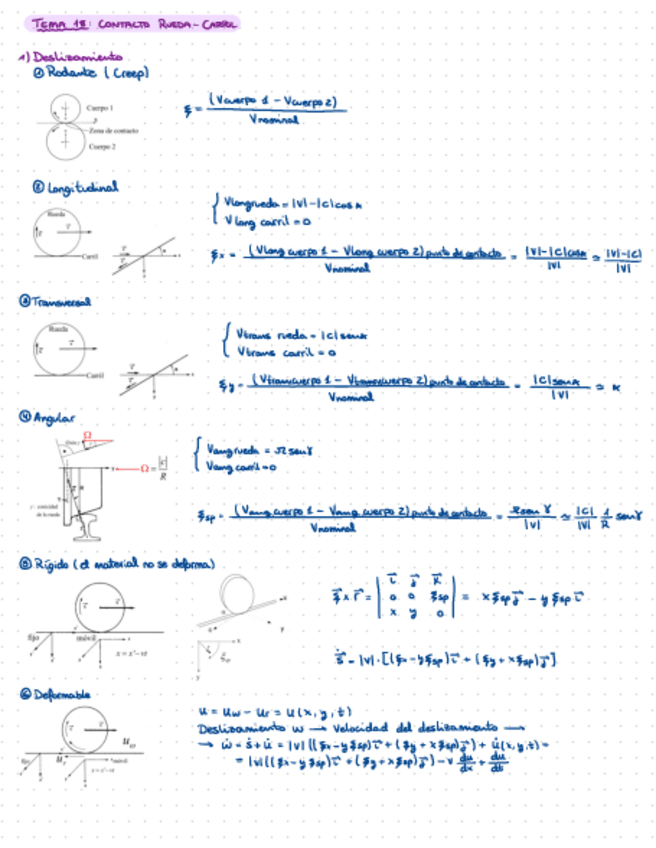 TEMA 18: CONTACTO RUEDA-CARRIL
1) Deslizamiento
① Rodante (Creep)
Cuerpo 1
Zona de contacto
Cuerpo 2
ξ = (Vcuerpo 1 - Vcuerpo 2) / Vnominal
② Longitudinal
Rueda
Carril
Vlong rueda = |V| - |C| cos α
Vlong carril = 0
ξx = (Vlong cuerpo 1 - Vlong cuerpo 2) punto de contacto / Vnominal = |V|-|C|cosα / |V| ≈ |V|-|C| / |V|
③ Transversal
Rueda
Carril
Vtrans rueda = |C| sen α
Vtrans carril = 0
ξy = (Vtrans cuerpo 1 - Vtrans cuerpo 2) punto de contacto / Vnominal = |C| sen α / |V| ≈ α
④ Angular
Ω
Ω =
γ : conicidad
de la rueda
Vang rueda = Ω sen γ
Vang carril = 0
ξsp = (Vang cuerpo 1 - Vang cuerpo 2) punto de contacto / Vnominal = Ω sen γ / |V| ≈ |C| / |V| 1 / R sen γ
⑤ Rígido (el material no se deforma)
fijo
móvil
x = x'-vt
ξ⃗ x r⃗ = | i⃗ j⃗ k⃗ | 0 0 ξsp | x y 0 | = x ξsp j⃗ - y ξsp i⃗
ṡ = |V| · [(ξx - y ξsp) i⃗ + (ξy + x ξsp) j⃗]
⑥ Deformable
fijo
móvil
x = x'-vt
u = uw - ur = u(x, y, t)
Deslizamiento w → Velocidad del deslizamiento →
→ ẇ = ṡ + u̇ = |V| ((ξx - y ξsp) i⃗ + (ξy + x ξsp) j⃗) + u̇(x, y, t) =
= |V| ((ξx - y ξsp) i⃗ + (ξy + x ξsp) j⃗) - v du/dx + du/dt